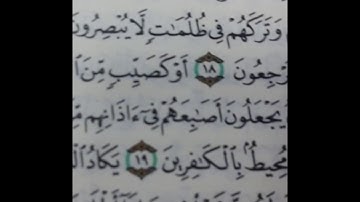 وَتَرَكَهُمْ فِى ظُلُمَٰتٍ لَّا يُبْصِرُونَ
يَرْجِعُونَ ١٨ أَوْ كَصَيِّبٍ مِّنَ
يَجْعَلُونَ أَصَٰبِعَهُمْ فِىٓ ءَاذَانِهِم
مُحِيطٌۢ بِٱلْكَٰفِرِينَ ١٩ يَكَادُ